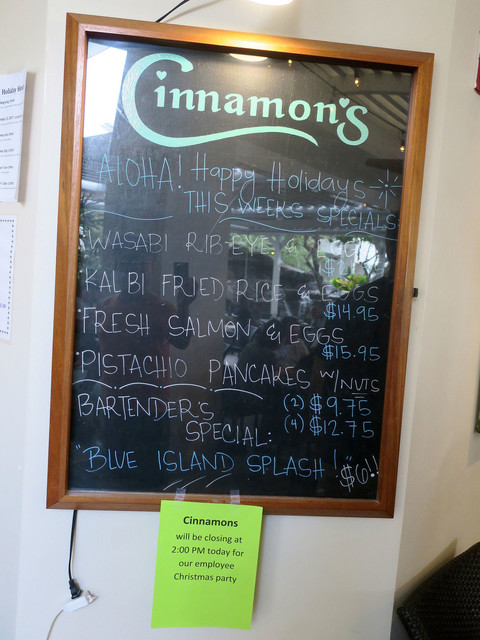 Cinnamon's
ALOHA! Happy Holidays
THIS WEEKS SPECIALS
WASABI RIB-EYE &
KALBI FRIED RICE & EGGS
$14.95
FRESH SALMON & EGGS
$15.95
PISTACHIO PANCAKES W/NUTS
(2) $9.75
BARTENDER'S
(4) $12.75
SPECIAL:
"BLUE ISLAND SPLASH!" $6!!
Cinnamons
will be closing at
2:00 PM today for
our employee
Christmas party